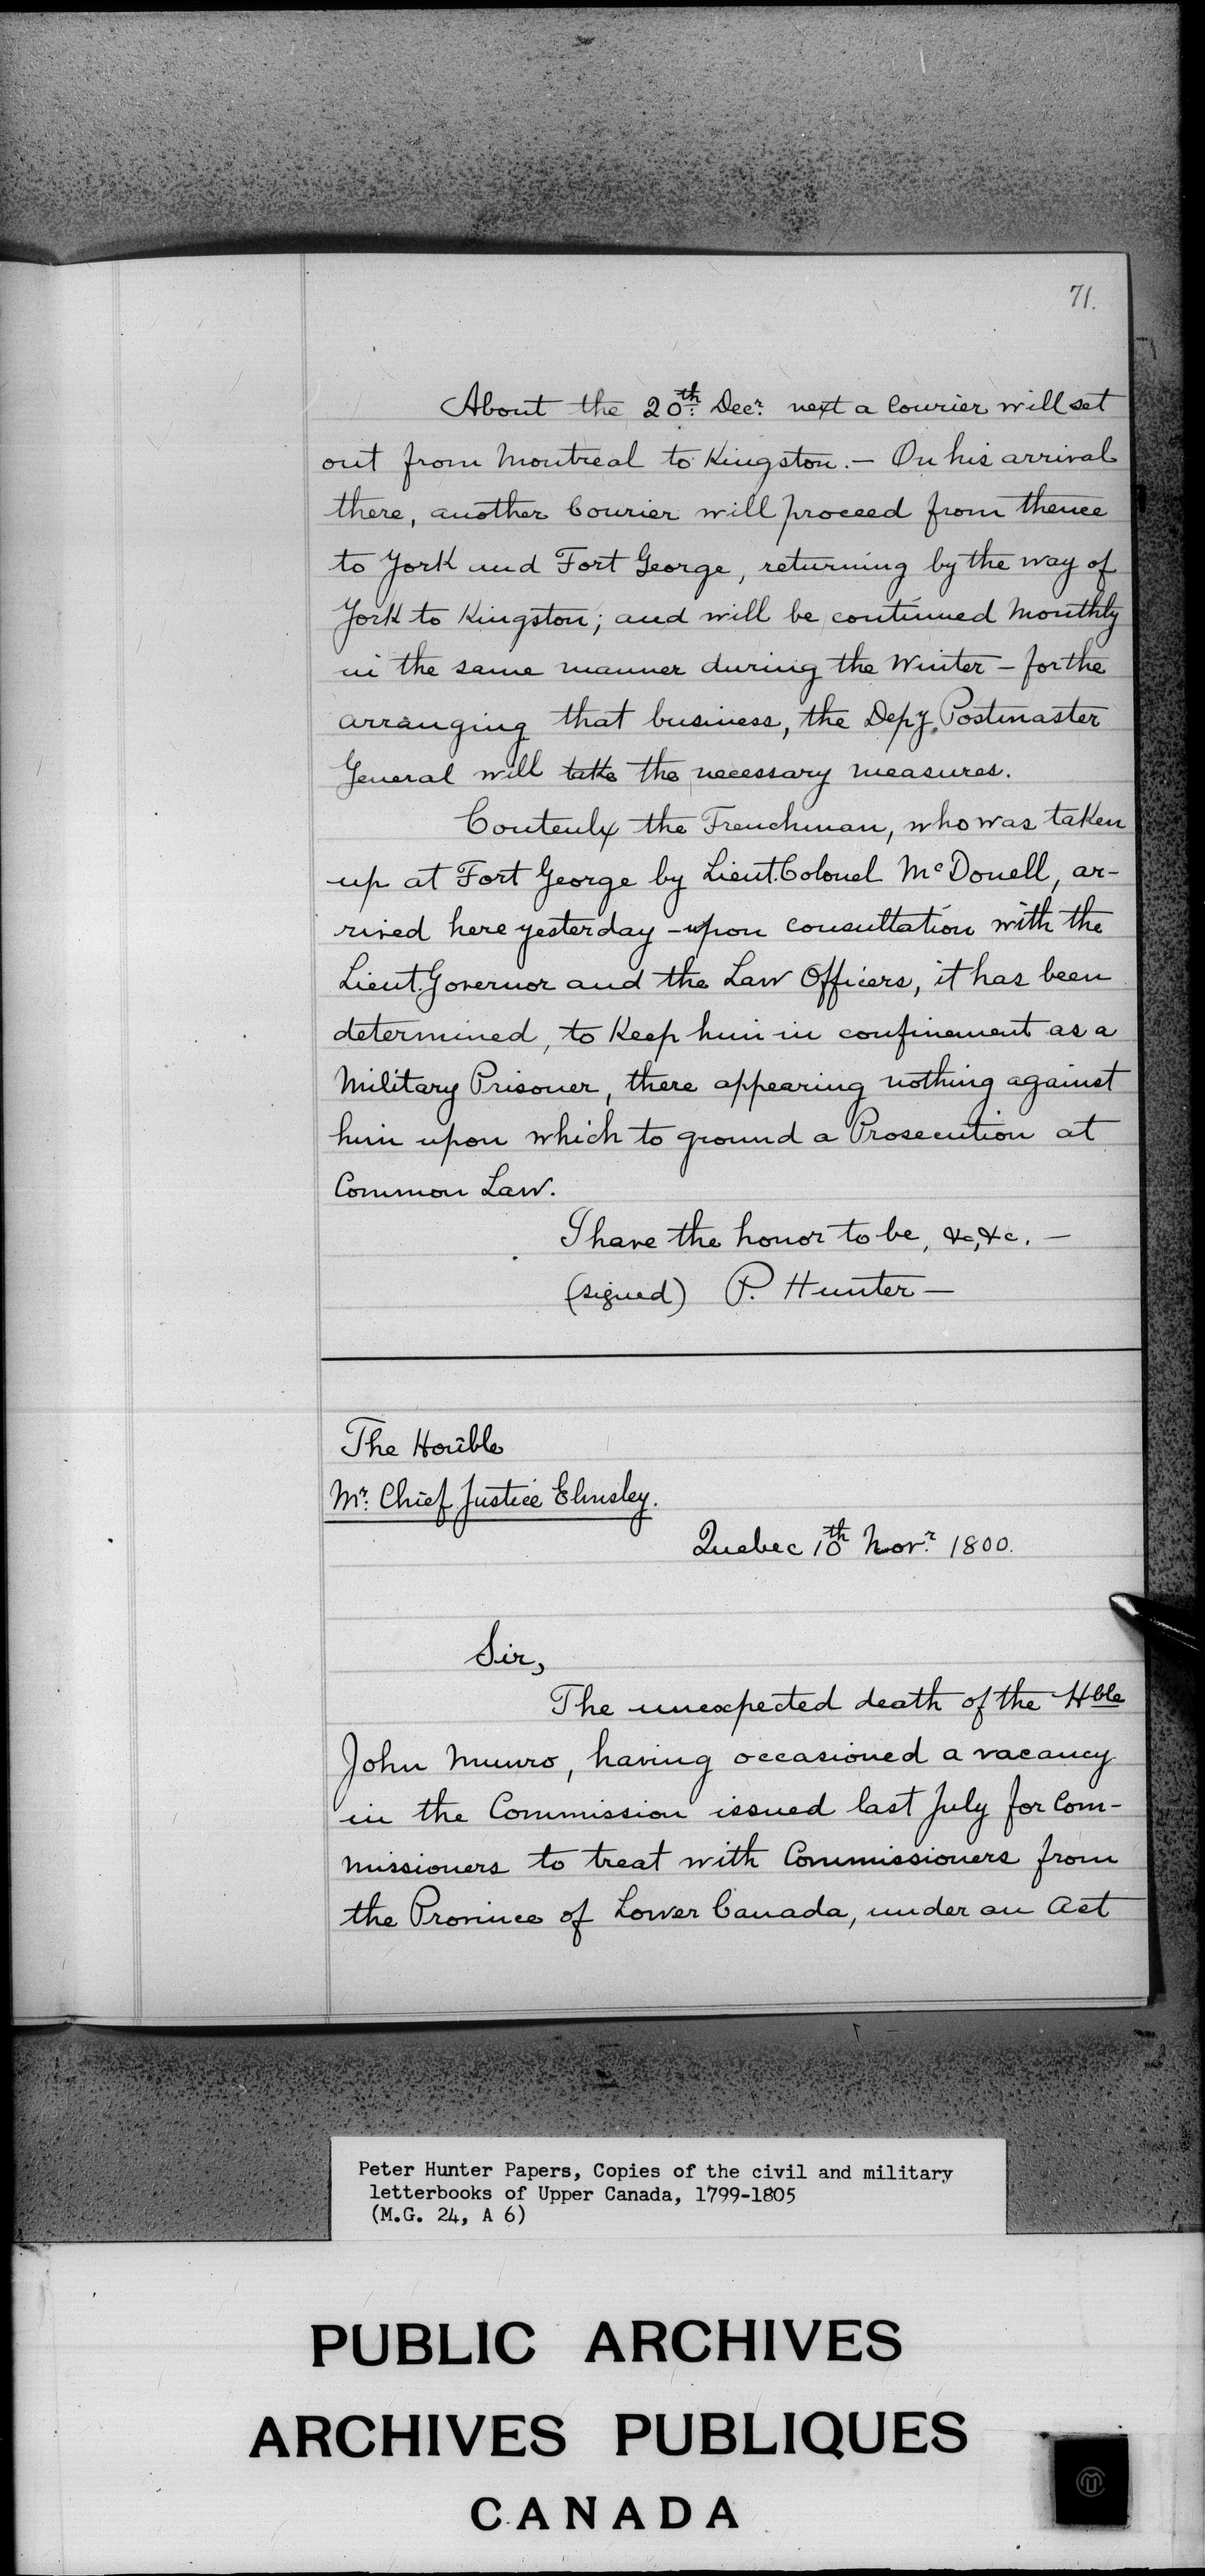 71.
About the 20th Decr. next a Courier will set
out from Montreal to Kingston. — On his arrival
there, another Courier will proceed from thence
to York and Fort George, returning by the way of
York to Kingston; and will be continued Monthly
in the same manner during the Winter — for the
arranging that business, the Depy. Postmaster
General will take the necessary measures.
the Frenchman, who was taken
up at Fort George by Lieut. Colonel McDonell, ar-
rived here yesterday — upon consultation with the
Lieut. Governor and the Law Officers, it has been
determined, to Keep him in confinement as a
Military Prisoner, there appearing nothing against
him upon which to ground a Prosecution at
Common Law.
I have the honor to be, &c, &c. —
(signed) P. Hunter —
The Honble
Mr. Chief Justice Elmsley.
Quebec 10th Novr. 1800.
Sir,
The unexpected death of the Hble
John Munro, having occasioned a vacancy
in the Commission issued last July for Com-
missioners to treat with Commissioners from
the Province of Lower Canada, under an Act
Peter Hunter Papers, Copies of the civil and military
letterbooks of Upper Canada, 1799-1805
(M.G. 24, A 6)
PUBLIC ARCHIVES
ARCHIVES PUBLIQUES
CANADA